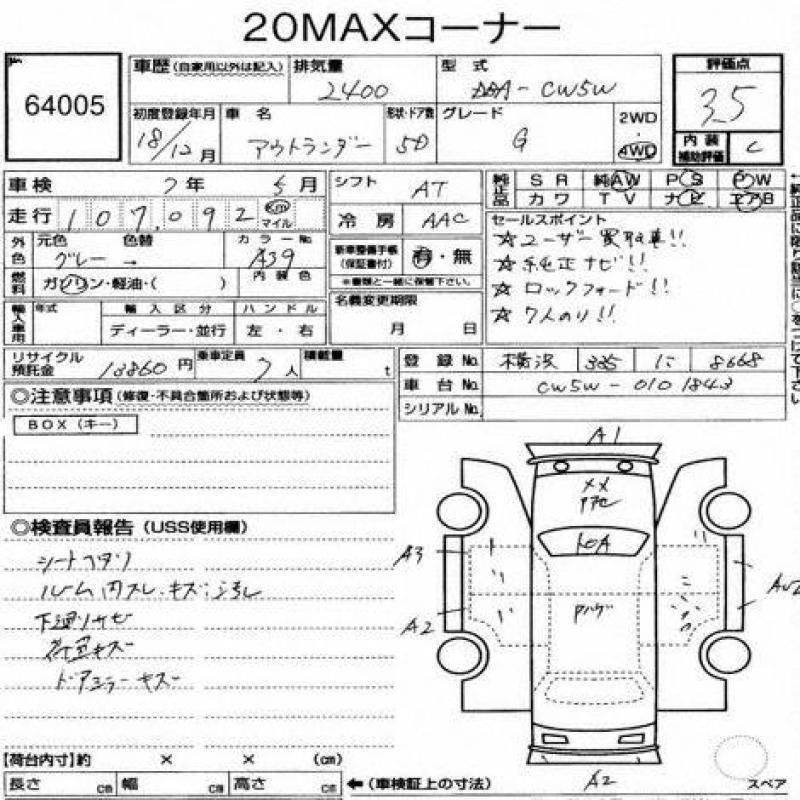 20MAXコーナー
64005
車歴 (自家用以外は記入) 排気量 2400 型式 DBA-CW5W 評価点 3.5
初度登録年月 18/12月 車名 アウトランダー 形状・ドア数 5D グレード G 2WD 4WD 内装補助評価 C
車検 7年 5月 シフト AT 純正品 SR 純AW PS PW
カワ TV ナビ エアB
走行 107,092 km マイル 冷房 AAC セールスポイント
外色 元色 色替 カラーNo.
グレー → A39 内装色
新車整備手帳 (保証書付) 有・無
※書類と一緒に保管下さい。
☆ユーザー買取車!!
☆純正ナビ!!
☆ロックフォード!!
☆7人のり!!
燃料 ガソリン・軽油・( ) 名義変更期限
月 日
輸入車用 年式 輸入区分 ハンドル
ディーラー・並行 左・右
リサイクル預託金 13860円 乗車定員 7人 積載量 t
登録No. 横浜 335 に 8668
車台No. CW5W-0101843
シリアルNo.
◎注意事項 (修復・不具合箇所および状態等)
BOX(キー)
◎検査員報告 (USS使用欄)
シートヘタリ
ルーム内スレ・キズ・汚れ
下廻りサビ
荷室キズ
ドアミラーキズ
A1
A3
A2
A2
【荷台内寸】約 × × (cm)
長さ cm 幅 cm 高さ cm ←(車検証上の寸法) スペア